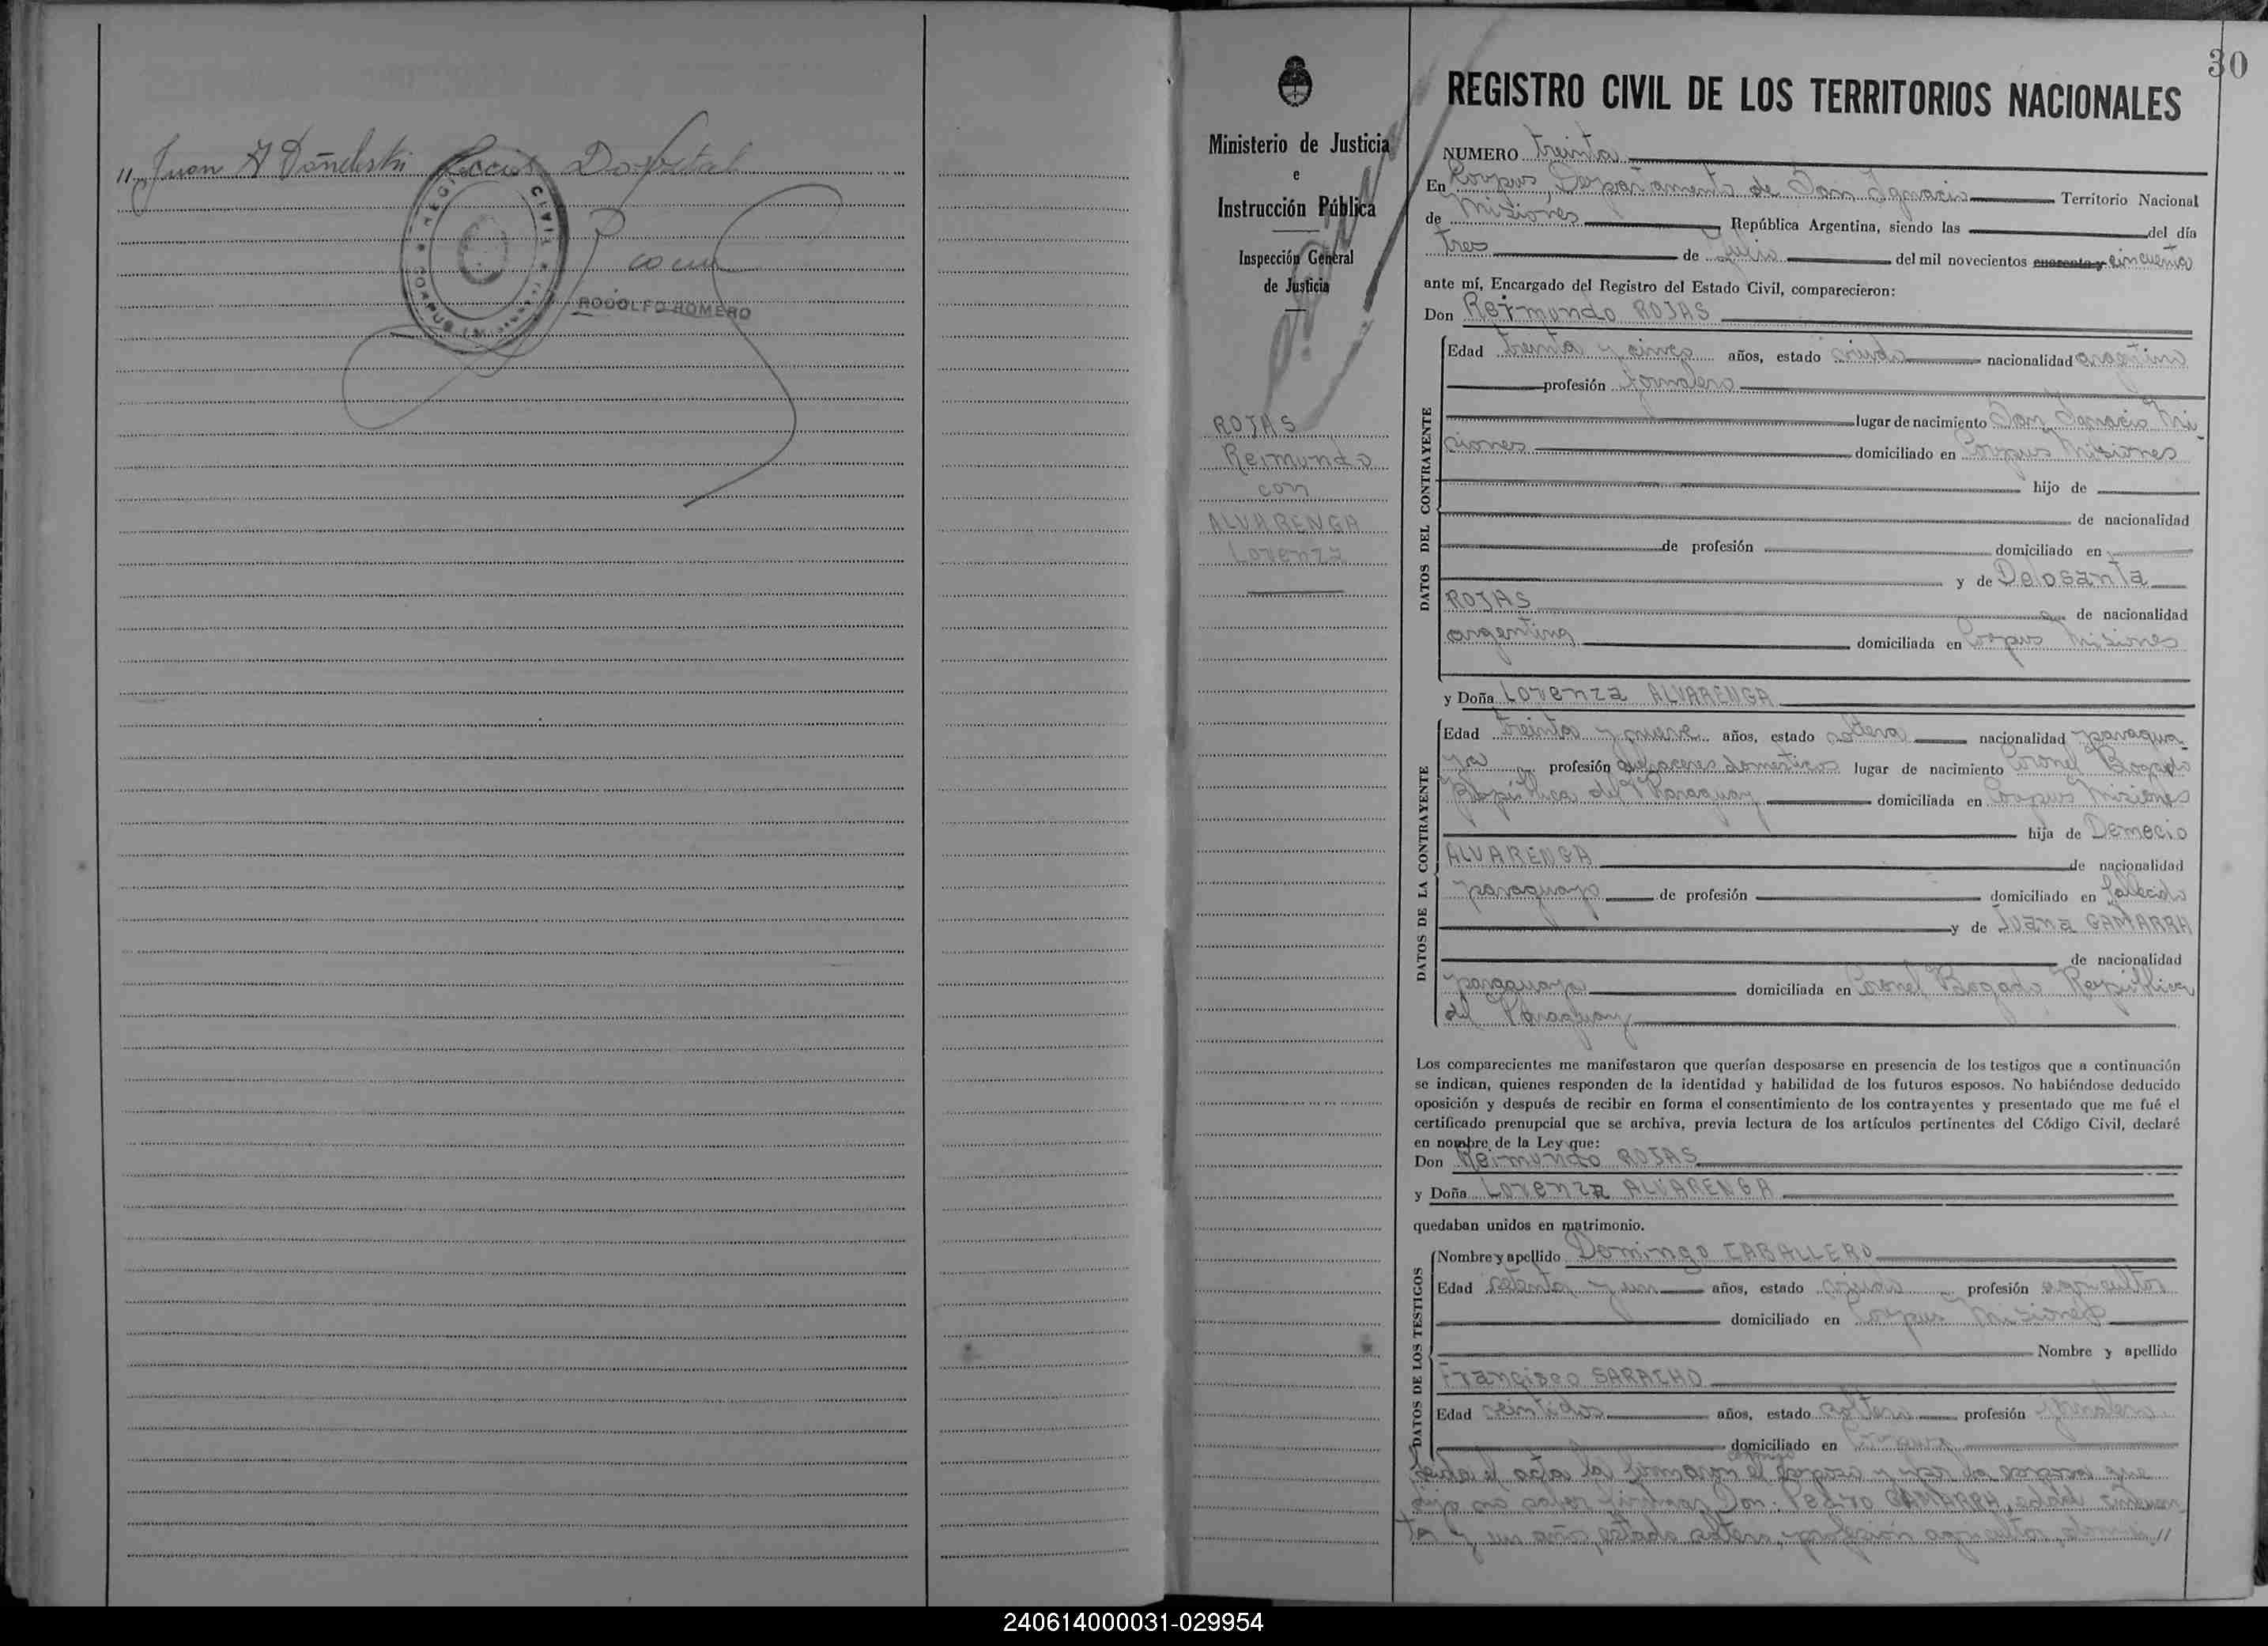 " Juan A
REGISTRO CIVIL
CORPUS
RODOLFO ROMERO
30
Ministerio de Justicia
e
Instrucción Pública
Inspección General
de Justicia
ROJAS
Reimundo
con
ALVARENGA
Lorenza
REGISTRO CIVIL DE LOS TERRITORIOS NACIONALES
NUMERO treinta
En Corpus, Departamento de San Ignacio Territorio Nacional
de Misiones República Argentina, siendo las del día
tres de Julio del mil novecientos cuarenta y cincuenta
ante mí, Encargado del Registro del Estado Civil, comparecieron:
Don Reimundo ROJAS
DATOS DEL CONTRAYENTE
Edad treinta y cinco años, estado viudo nacionalidad argentino
profesión Jornalero
lugar de nacimiento San Ignacio Mi-
siones domiciliado en Corpus Misiones
hijo de
de nacionalidad
de profesión domiciliado en
y de Delosanta
ROJAS de nacionalidad
argentina domiciliada en Corpus Misiones
y Doña Lorenza ALVARENGA
DATOS DE LA CONTRAYENTE
Edad treinta y nueve años, estado soltera nacionalidad paragua-
ya profesión quehaceres domesticos lugar de nacimiento Coronel Bogado
República del Paraguay domiciliada en Corpus Misiones
hija de Demecio
ALVARENGA de nacionalidad
paraguayo de profesión domiciliado en fallecido
y de Juana GAMARRA
de nacionalidad
paraguaya domiciliada en Coronel Bogado República
del Paraguay
Los comparecientes me manifestaron que querían desposarse en presencia de los testigos que a continuación
se indican, quienes responden de la identidad y habilidad de los futuros esposos. No habiéndose deducido
oposición y después de recibir en forma el consentimiento de los contrayentes y presentado que me fué el
certificado prenupcial que se archiva, previa lectura de los artículos pertinentes del Código Civil, declaré
en nombre de la Ley que:
Don Reimundo ROJAS
y Doña Lorenza ALVARENGA
quedaban unidos en matrimonio.
DATOS DE LOS TESTIGOS
Nombre y apellido Domingo CABALLERO
Edad setenta y un años, estado viudo profesión agricultor
domiciliado en Corpus Misiones
Nombre y apellido
Francisco SARACHO
Edad veintidos años, estado soltero profesión jornalero
domiciliado en Corpus
Leida el acta la firmaron el esposo y por la esposa que
dijo no saber firmar Don: Pedro GAMARRA, edad cincuen
ta y un años, estado soltero, profesión agricultor, domici "
240614000031-029954